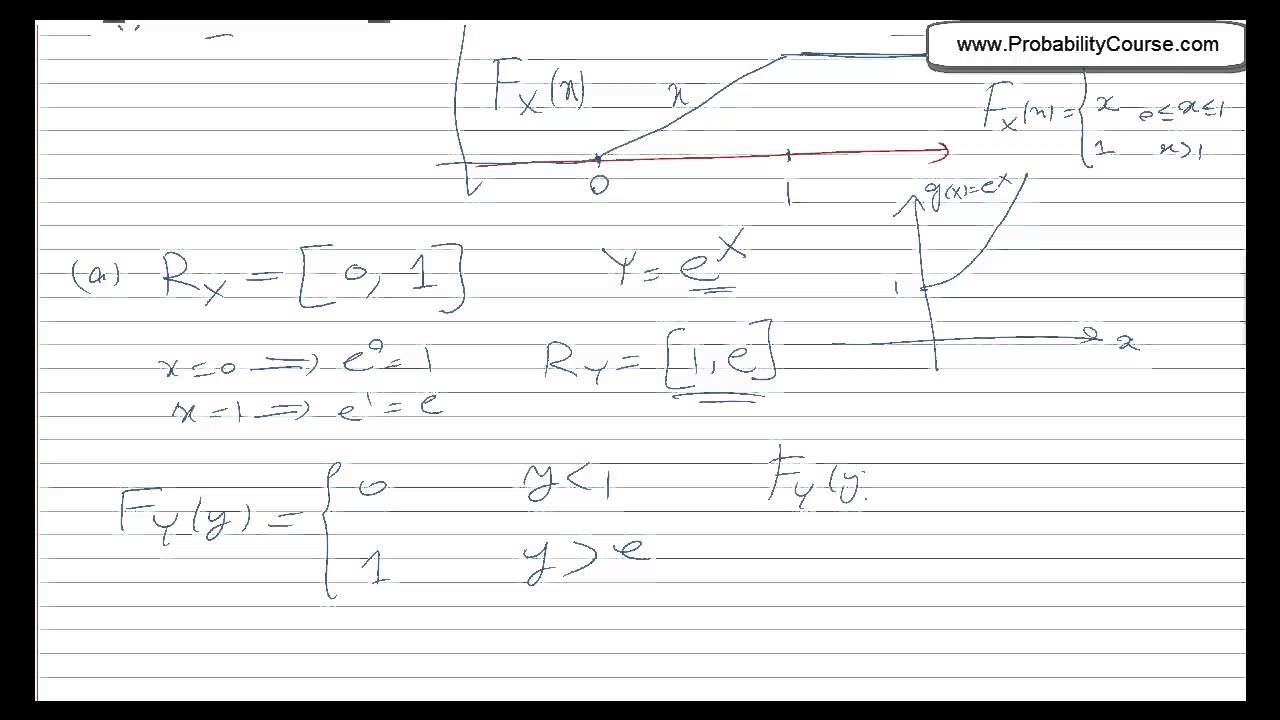 www.ProbabilityCourse.com
F_X(x)
x
F_X(x) = { x 0≤x≤1
1 x>1
0 1
g(x)=e^x
1
x
(a) R_X = [0, 1] Y = e^X
x=0 ⟹ e^0 = 1 R_Y = [1, e]
x=1 ⟹ e^1 = e
F_Y(y) = { 0 y<1 F_Y(y
1 y>e